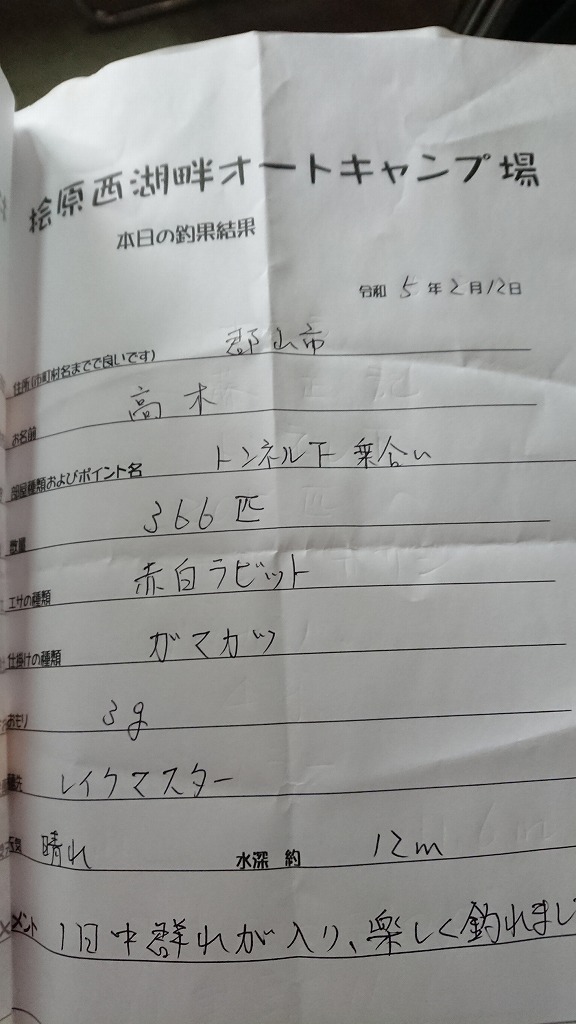 桧原西湖畔オートキャンプ場
本日の釣果結果
令和 5 年 2 月 12 日
住所(市町村名までで良いです) 郡山市
お名前 高木
部屋種類およびポイント名 トンネル下 乗合い
数量 366匹
エサの種類 赤白ラビット
仕掛けの種類 ガマカツ
おもり 3g
穂先 レイクマスター
天気 晴れ 水深 約 12m
コメント 1日中群れが入り、楽しく釣れまし